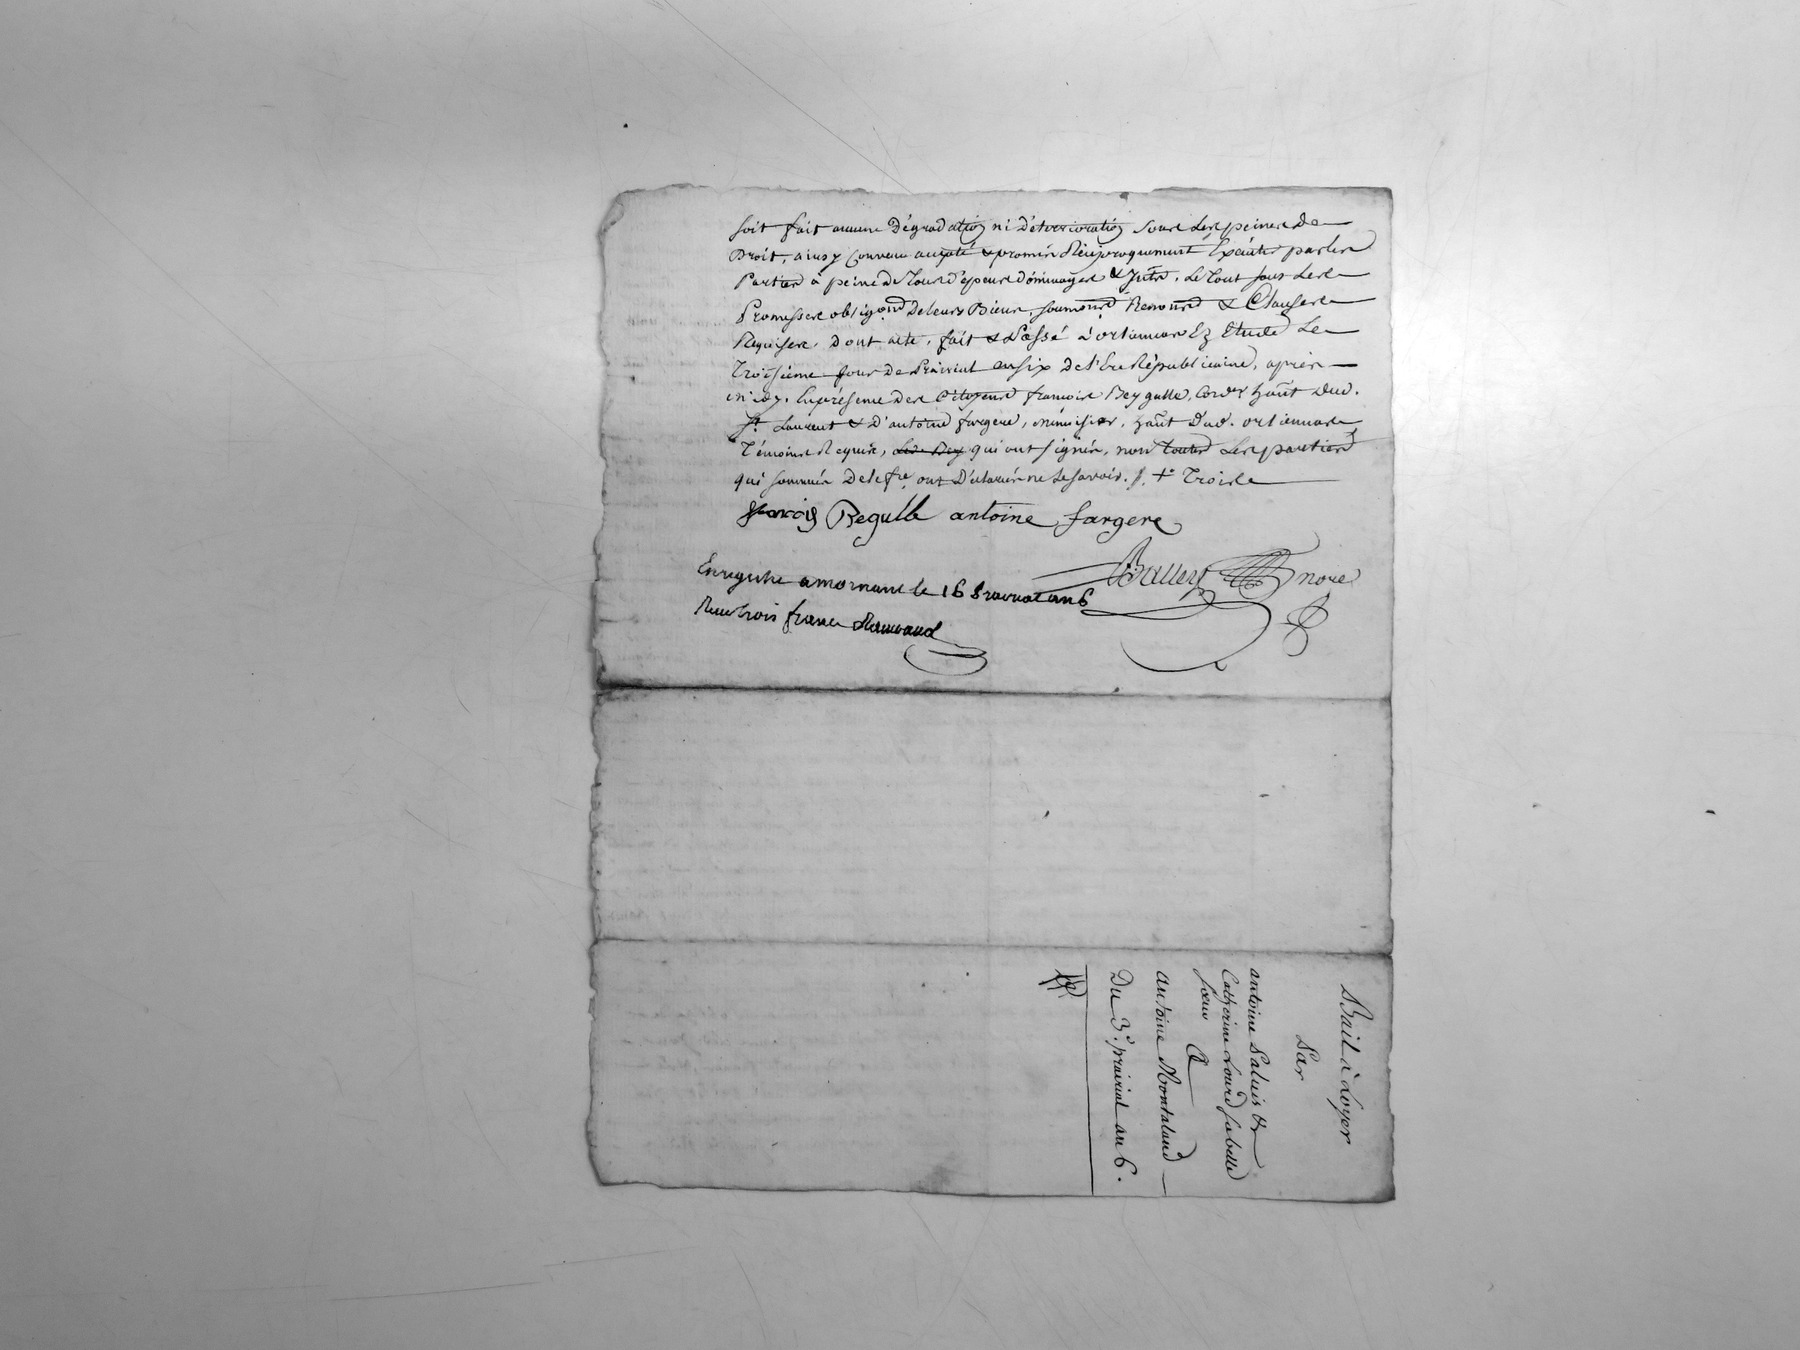 soit fait aucune Dégradation ni Détérioration sous les peines De
Droit, ainsy Convenu accepté & promis Réciproquement Exécuter par les
Parties à peine de tous dépens dommages & Jnts. Le tout sous les
Promesses obligons De leurs Biens, soumons Renons & Clauses
Requises. Dont acte, fait & Passé à orlienas Ez Etude Le
Troisieme Jour De Prairial an six de l'Ere Républicaine, après
midy. En présence des Citoyens francois Reygulle, Cordr hant Aud.
St. Laurent & D'antoine fargere, menuisier, hant Aud. orlienas
Témoins Requis, qui ont signés, non Les parties
qui sommés De le fre, ont Déclarés ne Le savoir. Trois
francois Regulle antoine fargere
Ballet nore
Enregistré a mornant le 16 prairial an 6
Reçu trois francs
Bail à Loyer
Par
antoine &
Catherine
sœur A
antoine Montaland
Du 3e. prairial an 6.